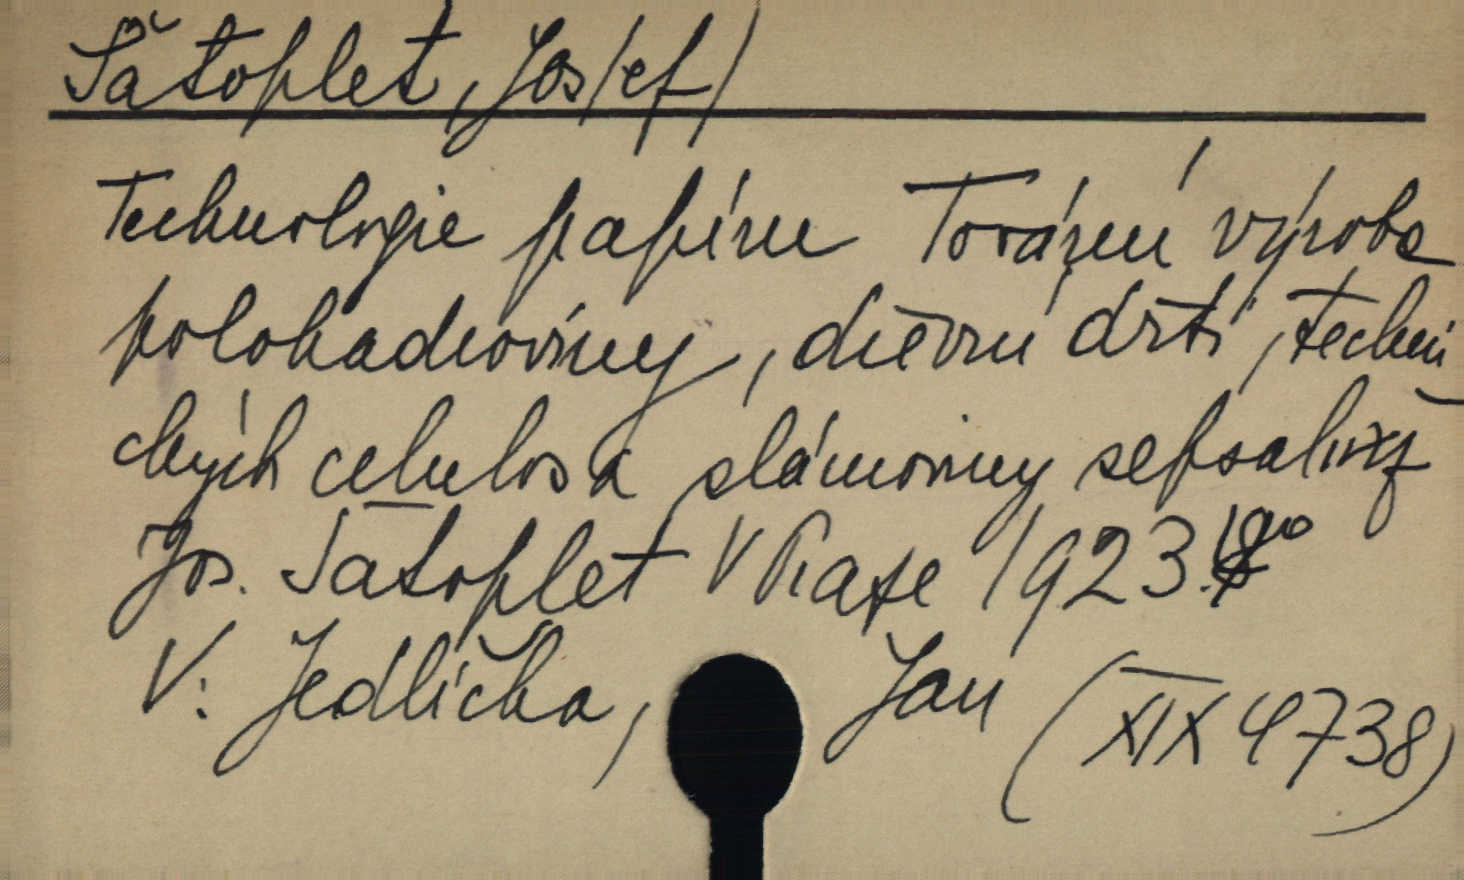 Šatoplet, Jos/ef/
Technologie papíru Tovární výroba
polohadroviny, dřevní drti, techni
ckých celulos a slámoviny sepsali
Jos. Šatoplet V Praze 1923.
V: Jedlička, Jan (XIX 4738)